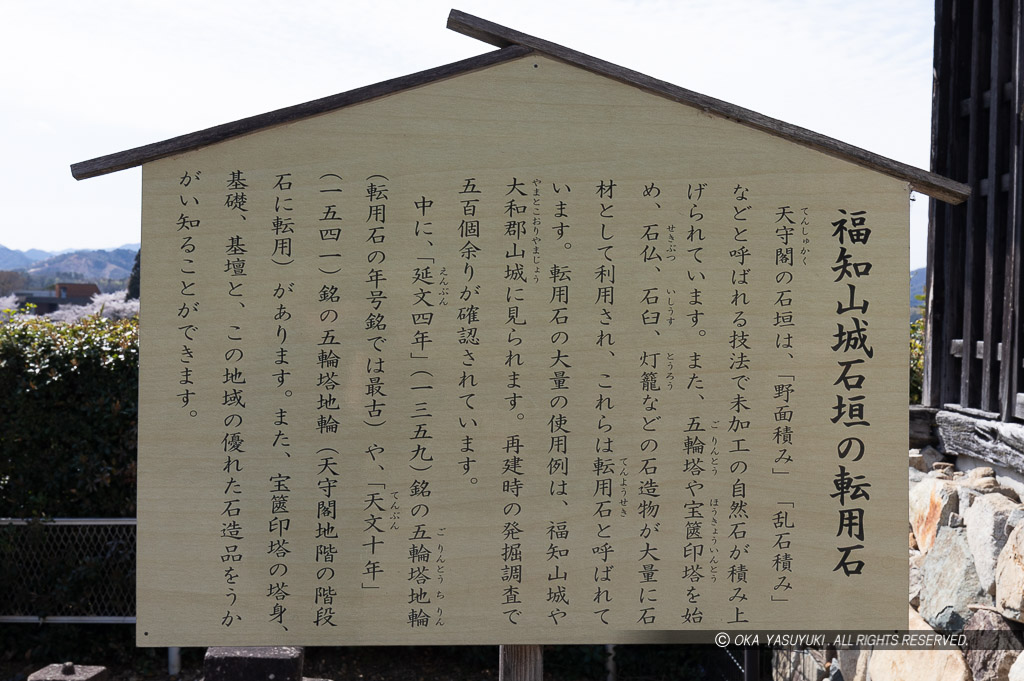 福知山城石垣の転用石
天守閣の石垣は、「野面積み」「乱石積み」
てんしゅかく
などと呼ばれる技法で未加工の自然石が積み上
げられています。また、五輪塔や宝篋印塔を始
ごりんとう ほうきょういんとう
め、石仏、石臼、灯籠などの石造物が大量に石
せきぶつ いしうす とうろう
材として利用され、これらは転用石と呼ばれて
てんようせき
います。転用石の大量の使用例は、福知山城や
大和郡山城に見られます。再建時の発掘調査で
やまとこおりやまじょう
五百個余りが確認されています。
中に、「延文四年」(一三五九)銘の五輪塔地輪
えんぶん ごりんとうちりん
(転用石の年号銘では最古)や、「天文十年」
てんぶん
(一五四一)銘の五輪塔地輪(天守閣地階の階段
石に転用)があります。また、宝篋印塔の塔身、
基礎、基壇と、この地域の優れた石造品をうか
がい知ることができます。
© OKA YASUYUKI. ALL RIGHTS RESERVED.